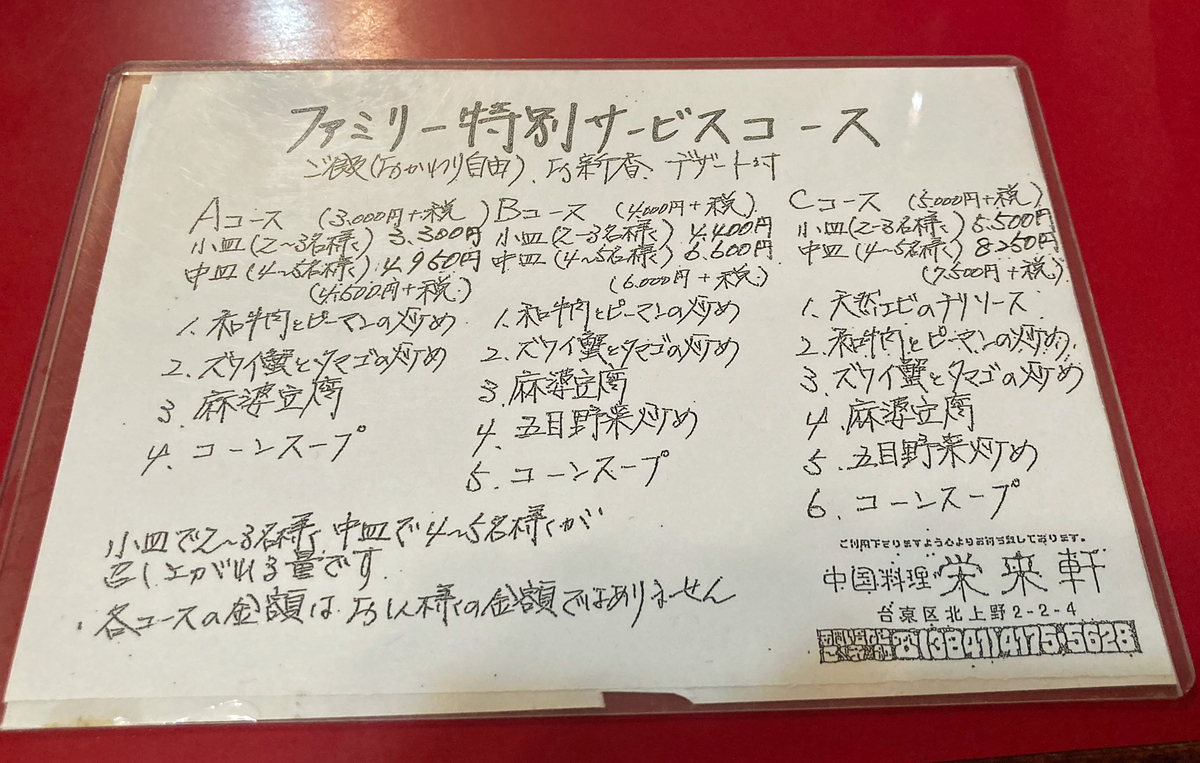 ファミリー特別サービスコース
ご飯(おかわり自由)、お新香、デザート付
Aコース (3,000円+税)
小皿(2~3名様) 3,300円
中皿(4~5名様) 4,950円
(4,500円+税)
1. 和牛肉とピーマンの炒め
2. ズワイ蟹とタマゴの炒め
3. 麻婆豆腐
4. コーンスープ
Bコース (4,000円+税)
小皿(2~3名様) 4,400円
中皿(4~5名様) 6,600円
(6,000円+税)
1. 和牛肉とピーマンの炒め
2. ズワイ蟹とタマゴの炒め
3. 麻婆豆腐
4. 五目野菜炒め
5. コーンスープ
Cコース (5,000円+税)
小皿(2~3名様) 5,500円
中皿(4~5名様) 8,250円
(7,500円+税)
1. 天然エビのチリソース
2. 和牛肉とピーマンの炒め
3. ズワイ蟹とタマゴの炒め
4. 麻婆豆腐
5. 五目野菜炒め
6. コーンスープ
小皿で2~3名様、中皿で4~5名様が
召し上がれる量です。
・各コースの金額はお1人様の金額ではありません
ご利用下さりますよう心よりお待ち致しております。
中国料理 栄来軒
台東区北上野2-2-4
☎(3841)4175・5628